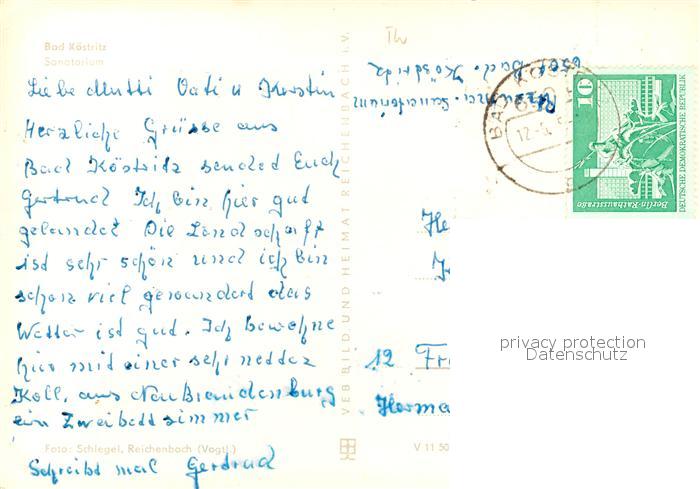 Bad Köstritz
Sanatorium
Liebe Mutti Vati u Kerstin
Herzliche Grüsse aus
Bad Köstritz sended Euch
Gertrud Ich bin hier gut
gelandet Die Landschaft
ist sehr schön und ich bin
schon viel gewandert das
Wetter ist gut. Ich bewohne
hier mit einer sehr netten
Koll. aus NeuBrandenburg
ein Zweibettzimmer
Foto: Schlegel, Reichenbach (Vogtl.)
Schreibt mal Gertrud
VEB BILD UND HEIMAT REICHENBACH i.V.
V 11 50
Th
6504 Bad Köstritz
Sanatorium
BAD KÖST
12
10
DEUTSCHE DEMOKRATISCHE REPUBLIK
Berlin-Rathausstraße
He
12 Fr
Herma
privacy protection
Datenschutz